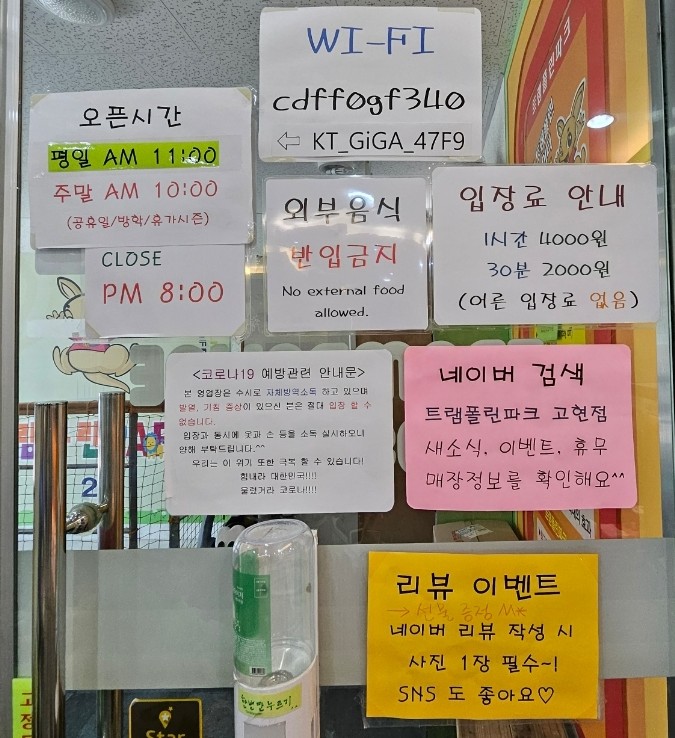 WI-FI
cdff0gf340
⇦ KT_GiGA_47F9
오픈시간
평일 AM 11:00
주말 AM 10:00
(공휴일/방학/휴가시즌)
CLOSE
PM 8:00
외부음식
반입금지
No external food
allowed.
입장료 안내
1시간 4000원
30분 2000원
(어른 입장료 없음)
<코로나19 예방관련 안내문>
본 영업장은 수시로 자체방역소독 하고 있으며
발열, 기침 증상이 있으신 분은 절대 입장 할 수
없습니다.
입장과 동시에 옷과 손 등을 소독 실시하오니
양해 부탁드립니다.^^
우리는 이 위기 또한 극복 할 수 있습니다!
힘내라 대한민국!!!!
물렀거라 코로나!!!!
네이버 검색
트램폴린파크 고현점
새소식, 이벤트, 휴무
매장정보를 확인해요^^
리뷰 이벤트
→ 선물 증정
네이버 리뷰 작성 시
사진 1장 필수~!
SNS 도 좋아요♡
한번만누르기
2
Star